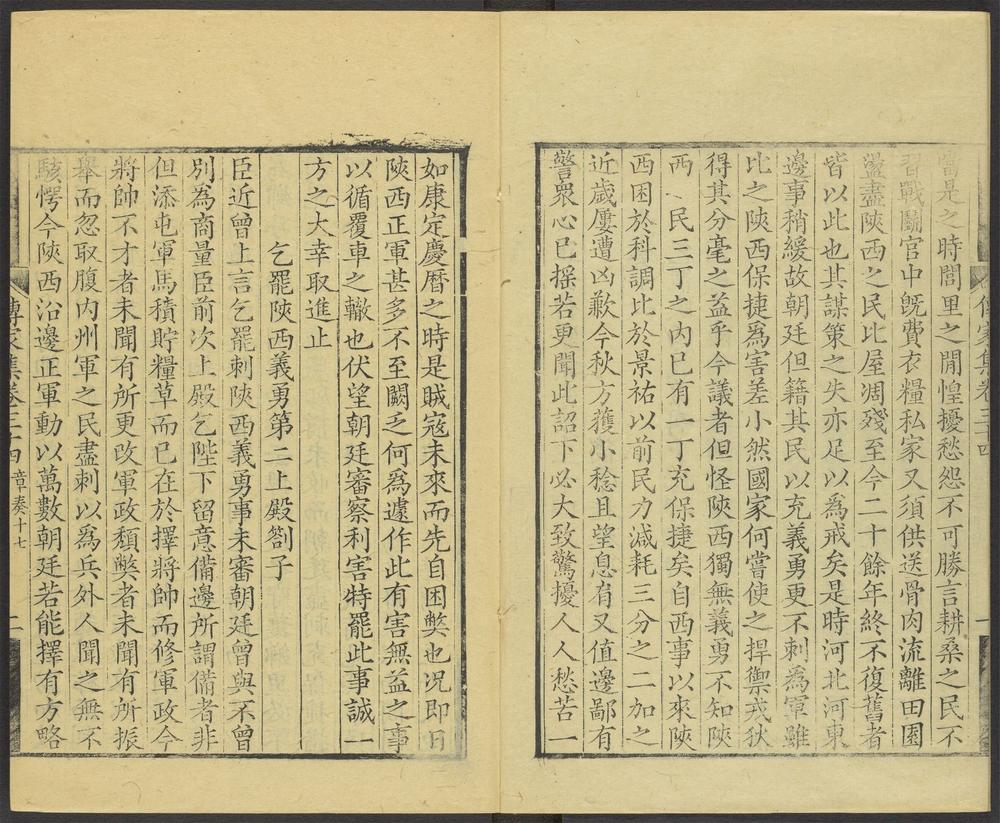 當是之時閭里之閒惶擾愁怨不可勝言耕桑之民不
習戰鬭官中旣費衣糧私家又須供送骨肉流離田園
蕩盡陝西之民比屋凋殘至今二十餘年終不復舊者
皆以此也其謀策之失亦足以爲戒矣是時河北河東
邊事稍緩故朝廷但籍其民以充義勇更不刺爲軍雖
比之陝西保捷爲害差小然國家何嘗使之捍禦戎狄
得其分毫之益乎今議者但怪陝西獨無義勇不知陝
西民三丁之內已有一丁充保捷矣自西事以來陝
西困於科調比於景祐以前民力減耗三分之二加之
近歲屢遭凶歉今秋方獲小稔且望息肩又值邊鄙有
警衆心已揺若更聞此詔下必大致驚擾人人愁苦一
傳家集卷三十四
一
如康定慶曆之時是賊寇未來而先自困弊也况即日
陝西正軍甚多不至闕乏何爲遽作此有害無益之事
以循覆車之轍也伏望朝廷審察利害特罷此事誠一
方之大幸取進止
乞罷陝西義勇第二上殿劄子
臣近曾上言乞罷刺陝西義勇事未審朝廷曾與不曾
別為商量臣前次上殿乞陛下留意備邊所謂備者非
但添屯軍馬積貯糧草而已在於擇將帥而修軍政今
將帥不才者未聞有所更改軍政頹弊者未聞有所振
舉而忽取腹内州軍之民盡刺以爲兵外人聞之無不
駭愕今陝西沿邊正軍動以萬數朝廷若能擇有方略
傳家集卷三十四 章奏十七
二